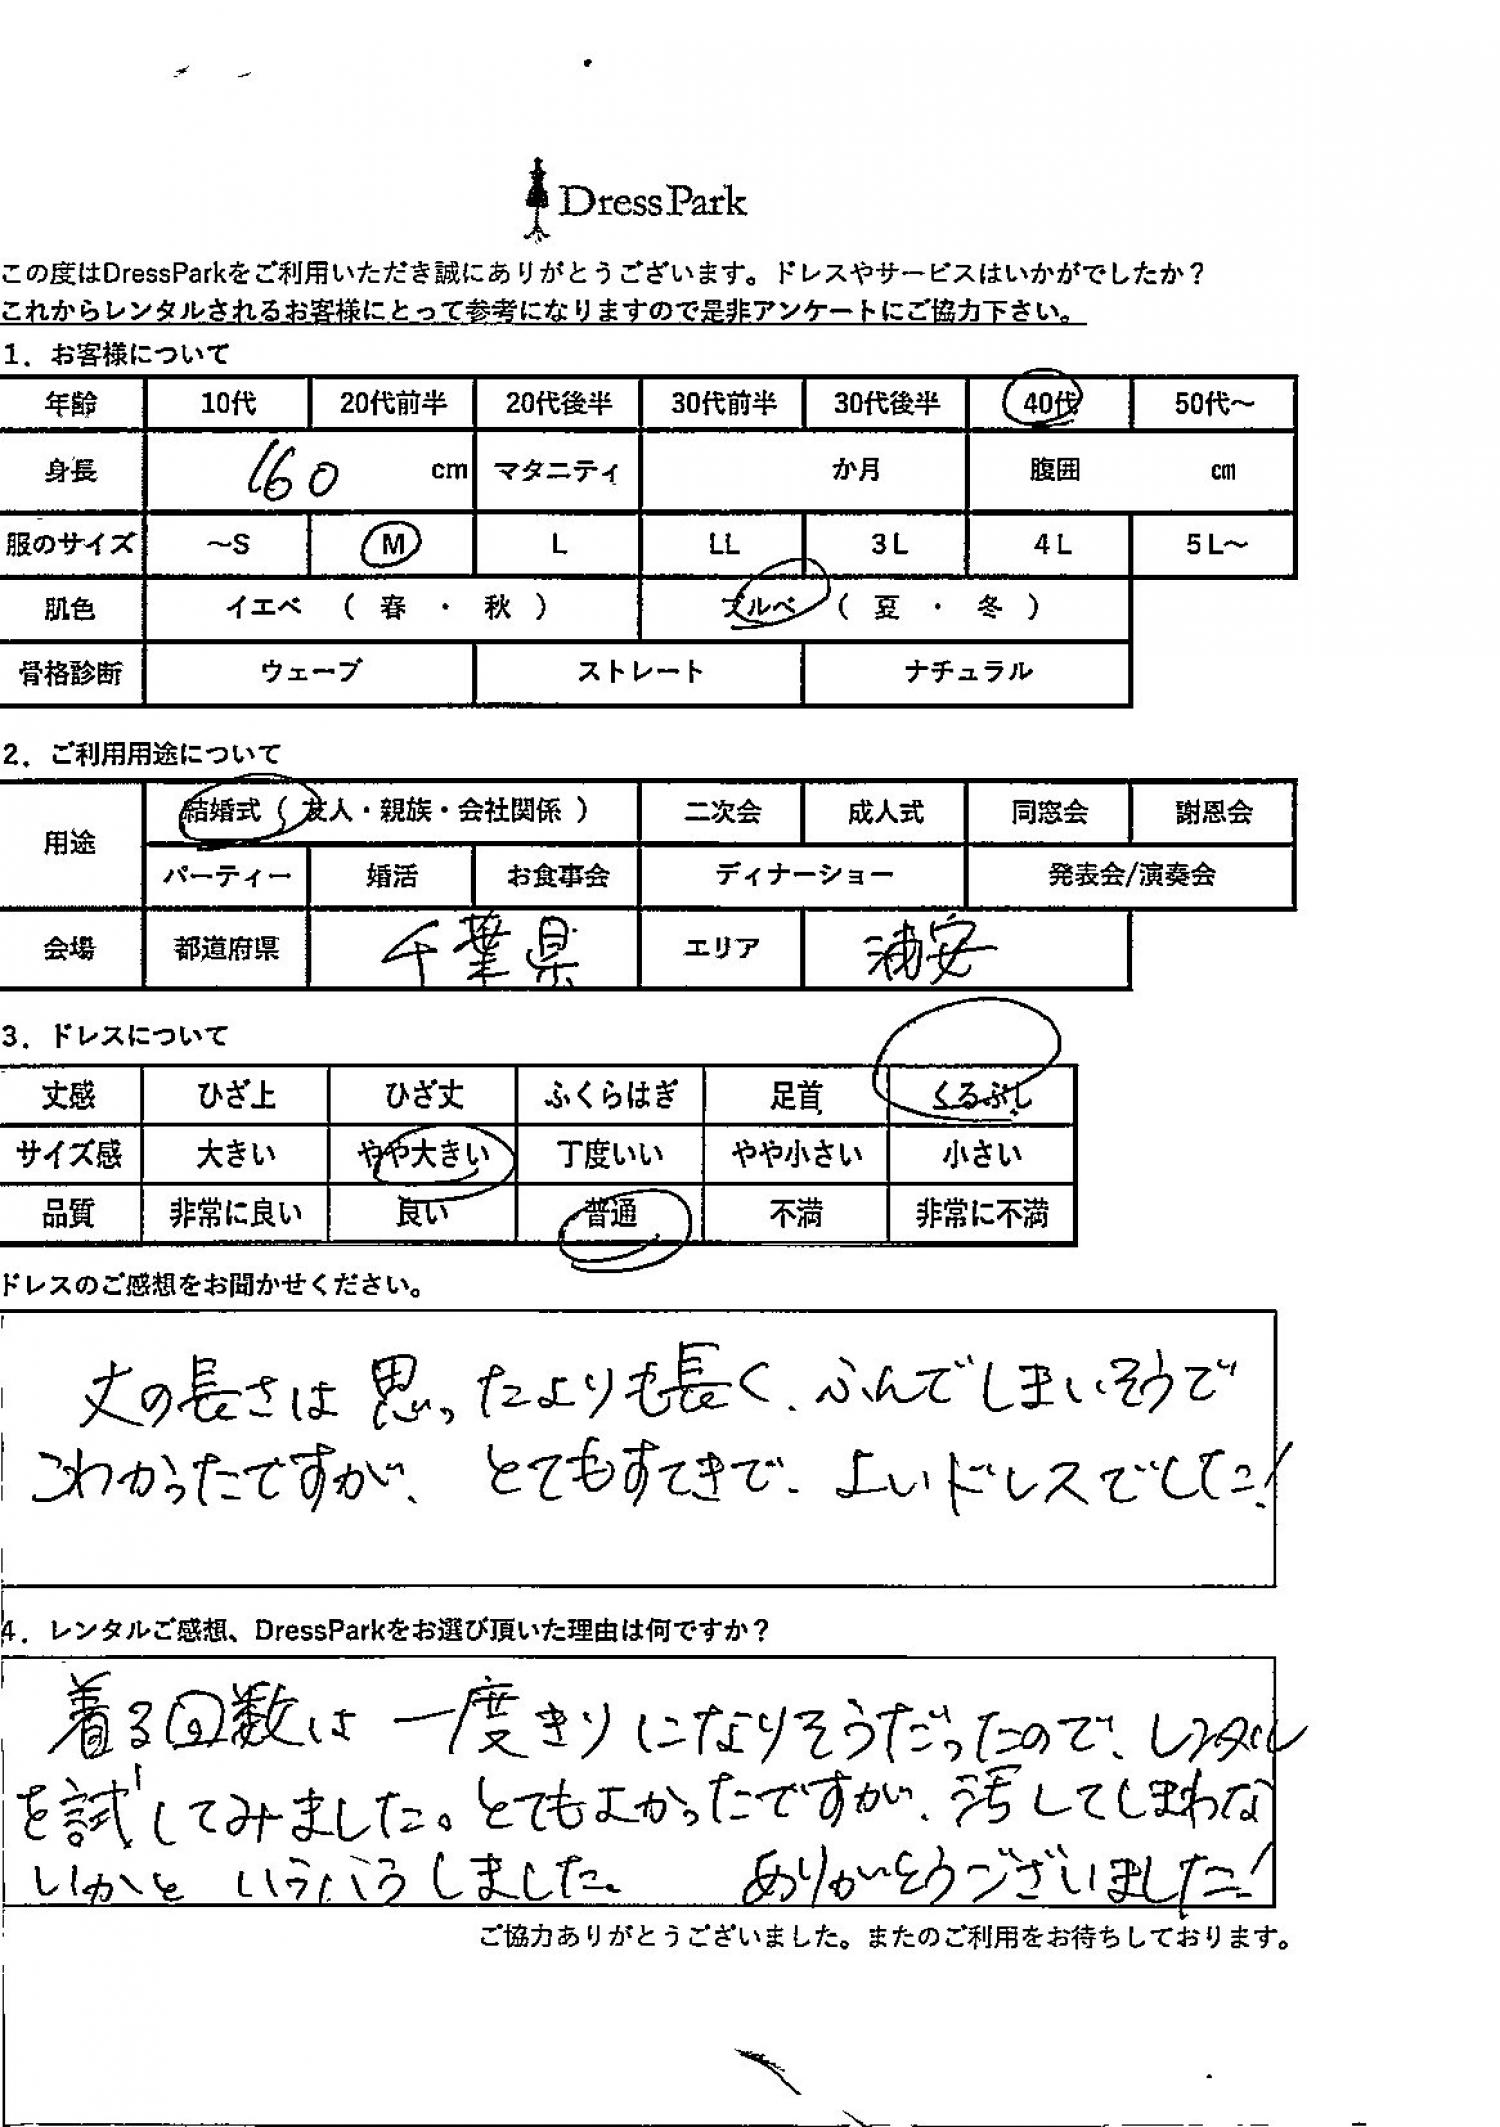 DressPark
この度はDressParkをご利用いただき誠にありがとうございます。ドレスやサービスはいかがでしたか？
これからレンタルされるお客様にとって参考になりますので是非アンケートにご協力下さい。
1．お客様について
年齢 10代 20代前半 20代後半 30代前半 30代後半 40代 50代～
身長 160 cm マタニティ か月 腹囲 cm
服のサイズ ～S M L LL 3L 4L 5L～
肌色 イエベ （ 春 ・ 秋 ） ブルベ （ 夏 ・ 冬 ）
骨格診断 ウェーブ ストレート ナチュラル
2．ご利用用途について
用途 結婚式（ 友人・親族・会社関係 ） 二次会 成人式 同窓会 謝恩会
パーティー 婚活 お食事会 ディナーショー 発表会/演奏会
会場 都道府県 千葉県 エリア 浦安
3．ドレスについて
丈感 ひざ上 ひざ丈 ふくらはぎ 足首 くるぶし
サイズ感 大きい やや大きい 丁度いい やや小さい 小さい
品質 非常に良い 良い 普通 不満 非常に不満
ドレスのご感想をお聞かせください。
丈の長さは思ったよりも長く、ふんでしまいそうで
こわかったですが、とてもすてきで、よいドレスでした！
4．レンタルご感想、DressParkをお選び頂いた理由は何ですか？
着る回数は一度きりになりそうだったので、レンタル
を試してみました。とてもよかったですが、汚してしまわな
いかと しました。 ありがとうございました！
ご協力ありがとうございました。またのご利用をお待ちしております。